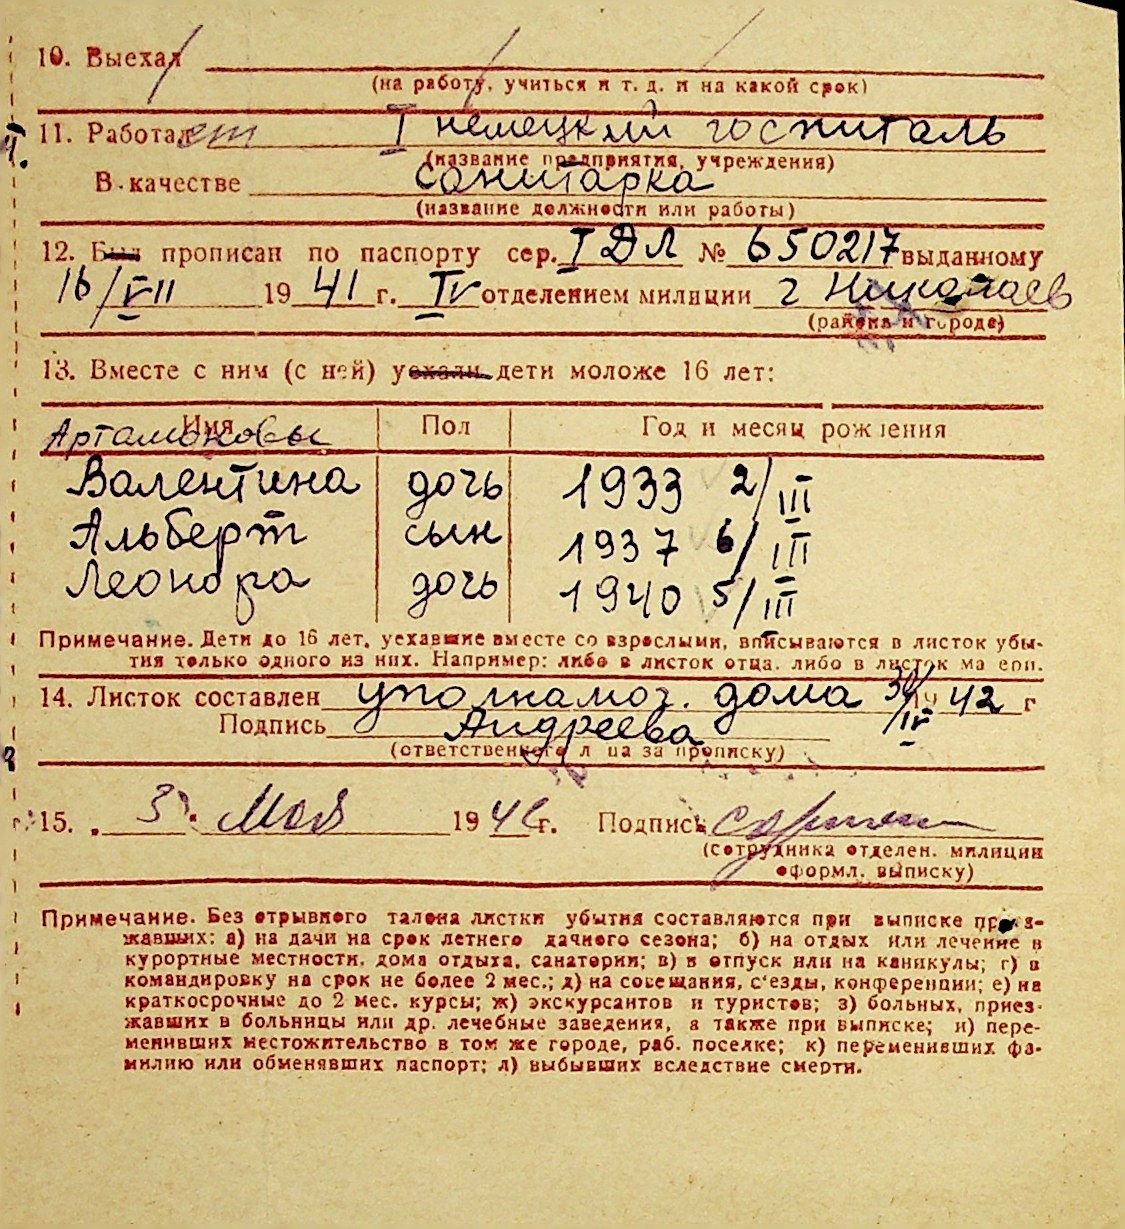 10. Выехал
(на работу, учиться и т. д. и на какой срок)
11. Работает I немецкий госпиталь
(название предприятия, учреждения)
В качестве санитарка
(название должности или работы)
12. Был прописан по паспорту сер. I ДЛ № 650217 выданному
16/VII 1941 г. IV отделением милиции г Николаев
(района и города)
13. Вместе с ним (с ней) уехали дети моложе 16 лет:
Имя Пол Год и месяц рождения
Артамоновы
Валентина дочь 1933 2/III
Альберт сын 1937 6/III
Леонора дочь 1940 5/III
Примечание. Дети до 16 лет, уехавшие вместе со взрослыми, вписываются в листок убы-
тия только одного из них. Например: либо в листок отца, либо в листок матери.
14. Листок составлен уполнамоч. дома 30/IV 1942 г
Подпись Андреева
(ответственного лица за прописку)
15. 3 Мая 1942 г. Подпись
(сотрудника отделен. милиции
оформл. выписку)
Примечание. Без отрывного талона листки убытия составляются при выписке проез-
жавших: а) на дачи на срок летнего дачного сезона; б) на отдых или лечение в
курортные местности, дома отдыха, санатории; в) в отпуск или на каникулы; г) в
командировку на срок не более 2 мес.; д) на совещания, с'езды, конференции; е) на
краткосрочные до 2 мес. курсы; ж) экскурсантов и туристов; з) больных, приез-
жавших в больницы или др. лечебные заведения, а также при выписке; и) пере-
менивших местожительство в том же городе, раб. поселке; к) переменивших фа-
милию или обменявших паспорт; л) выбывших вследствие смерти.